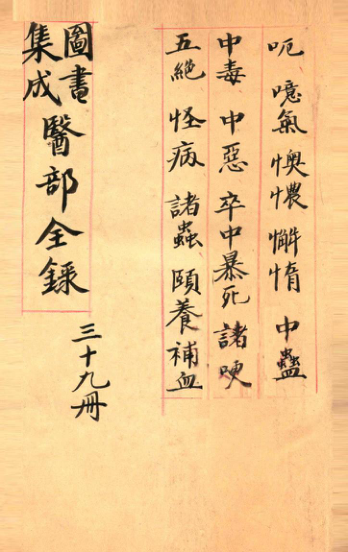 呃 噫氣 懊憹 懈惰 中蠱
中毒 中惡 卒中暴死 諸哽
五絕 怪病 諸蟲 頤養補血
圖書
集成
醫部全錄
三十九冊